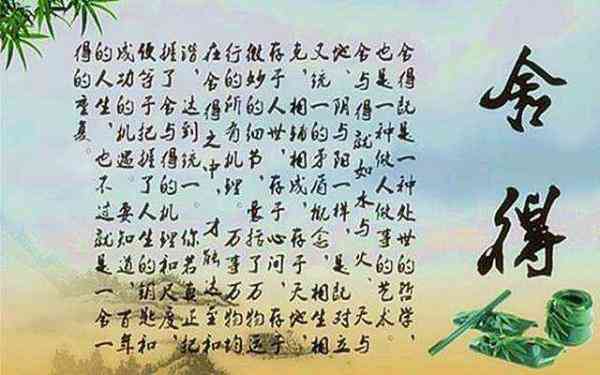 舍得
舍得既是一种处世的哲学，
也是一种做人做事的艺术。
舍与得就如水与火、天与
地、阴与阳一样，是既对立
又统一的矛盾概念，相生相
克，相辅相成，存于天地，
存于人世，存于心间，存于
微妙的细节，囊括了万物运
行的所有机理。万事万物均
在舍得之中，才能达至和
谐，达到统一。你若真正把
握了舍与得的机理和尺度，
便等于把握了人生的钥匙和
成功的机遇。要知道，百年
的人生，也不过就是一舍一
得的重复。